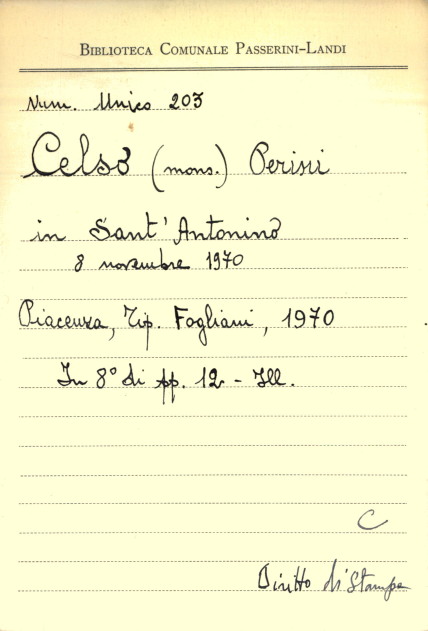 Biblioteca Comunale Passerini-Landi
Num. Unico 203
Celso (mons.) Perini
in Sant'Antonino
8 novembre 1970
Piacenza, Tip. Fogliani, 1970
In 8° di pp. 12 - Ill.
C
Diritto di Stampa